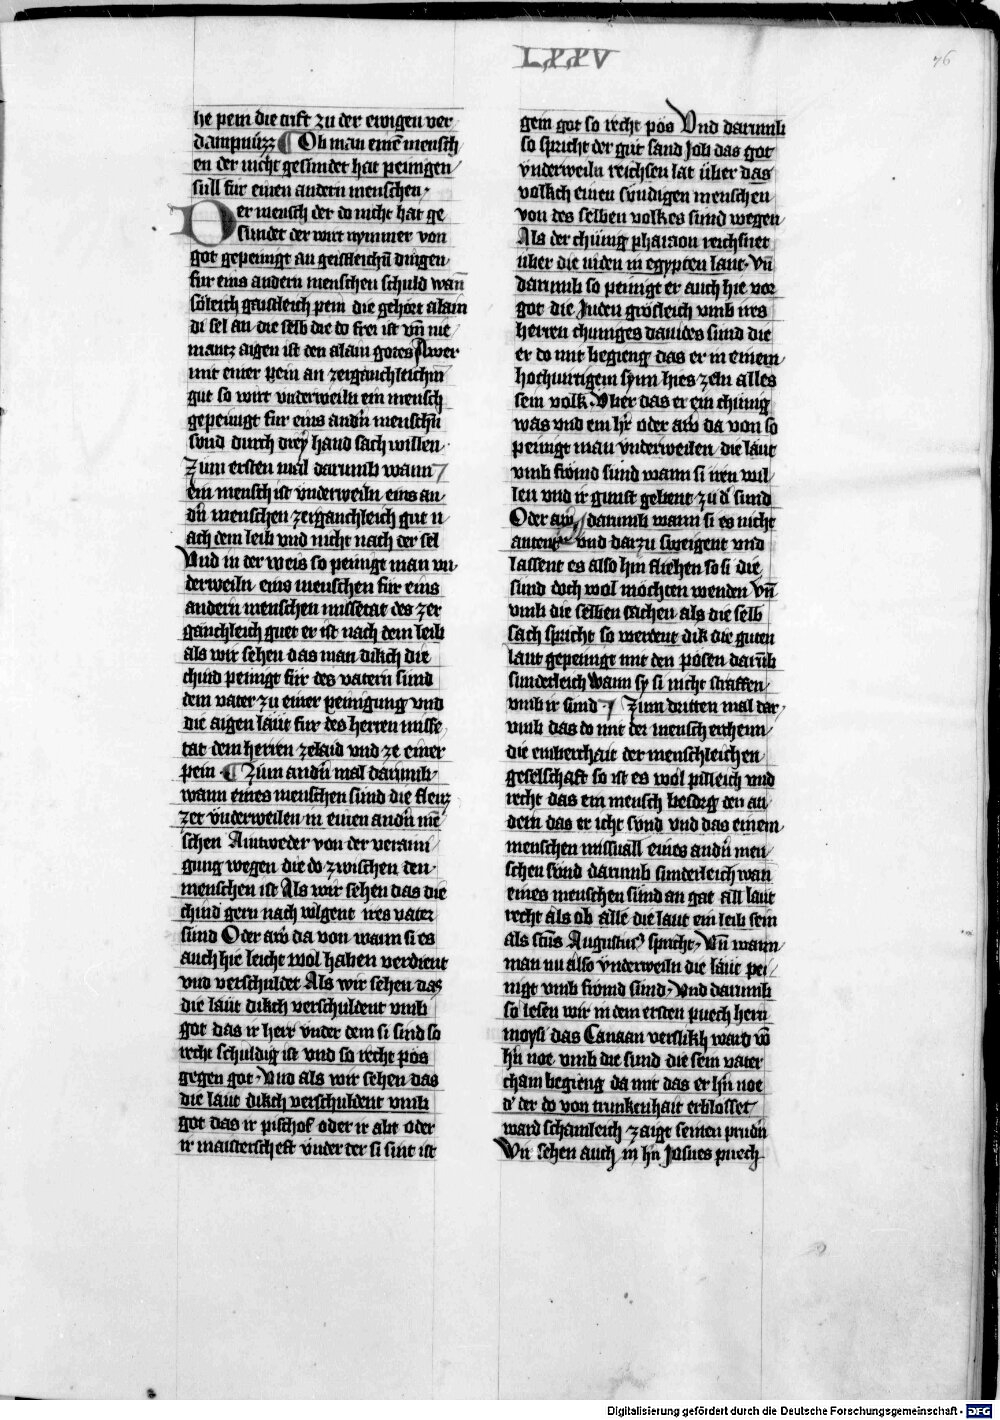 LXXV
76
he pein die trift zu der ewigen ver
dampnüzz Ob man eine͞ mensch
en der nicht gesundet hat peinigen
süll für einen andern menschen·
Der mensch der do nicht hat ge
sundet der wirt nymmer von
got gepeinigt an geistleichn̄ dingen
für eins andern menschen schuld wan̄
söleich gaistleich pein die gehört alain
di sel an die selb die do frei ist vn̄ nie
mantz aigen ist den alain gotes Awer
mit einer pein an zergänchleichm
gut so wirt vnderweiln ein mensch
gepeinigt für eins andn̄ menschn̄
sünd durch drey hand sach willen·
Zum ersten mal darumb wann
ein mensch ist vnderweiln eins an
dn̄ menschen zergänchleich gut n
ach dem leib vnd nicht nach der sel
Vnd in der weis so peinigt man vn
derweiln eins menschen für eins
andern menschen missetat des zer
gänchleich guet er ist nach dem leib
als wir sehen das man dikch die
chind peinigt für des vatern sünd
dem vater zu einer peinigung vnd
die aigen läut für des herren misse
tat dem herren zelaid vnd ze einer
pein· Zum andn̄ mal darumb
wann eines menschen sünd die fleuz
zet vnderweilen in einen andn̄ me͞
schen Aintweder von der veraini
gung wegen die do zwischen den
menschen ist Als wir sehen das die
chind gern nach volgent ires vater
sünd Oder aw̄ da von wann si es
auch hie leicht wol haben verdient
vnd verschuldet Als wir sehen das
die läut dikch verschuldent vmb
got das ir herr vnder dem si sind so
recht schuldig ist vnd so recht pös
gegen got· Vnd als wir sehen das
die läut dikch verschuldent vmb
got das ir pischof oder ir abt oder
ir maisterscheft vnder der si sint ist
gein got so recht pös Vnd darumb
so spricht der gut sand Job das got
vnderweiln reichsen lat über das
volkch einen sündigen menschen
von des selben volkes sünd wegen
Als der chünig pharaon reichsnet
über die iuden in egypten lant· Vn̄
darumb so peinigt er auch hie vor
got die Juden grösleich vmb ires
herren chuniges dauides sünd die
er do mit begieng das er in einem
hochuertigem synn hies zeln alles
sein volk Vber das er ein chünig
was vnd ein hr̄ oder aw̄ da von so
peinigt man vnderweilen die läut
vmb frömd sünd wann si iren wil
len vnd ir gunst gebent zu d' sünd
Oder aw̄ darumb wann si es nicht
antent vnd darzu sweigent vnd
lassent es also hin fliehen so si die
sünd doch wol möchten wenden Vn̄
vmb die selben sachen als die selb
sach spricht so werdent dik die guten
läut gepeinigt mit den pösen darūb
sunderleich Wann sy si nicht straffen
vmb ir sünd· Zum dritten mal dar
vmb das do mit der mensch erchenn
die einberchait der menschleichen
geselschaft so ist es wol pilleich vnd
recht das ein mensch besorg den an
dern das er icht sünd vnd das einem
menschen missuall eines andn̄ men
schen sünd darumb sunderleich wan
eines menschen sünd an gat all läut
recht als ob alle die läut ein leib sein
als sctus Augustin' spricht· Vn̄ wann
man nu also vnderweiln die läut pei
nigt vmb frömd sünd· Vnd darumb
so lesen wir in dem ersten puech hern
moysi das Canaan verflükh ward vo͞
hn̄ noe vmb die sünd die sein vater
cham begieng da mit das er hn̄ noe
d' der do von trunkenhait erblösset
ward schamleich zaigt seinen prudn̄
Wir sehen auch in hn̄ Josues puech
Digitalisierung gefördert durch die Deutsche Forschungsgemeinschaft - DFG